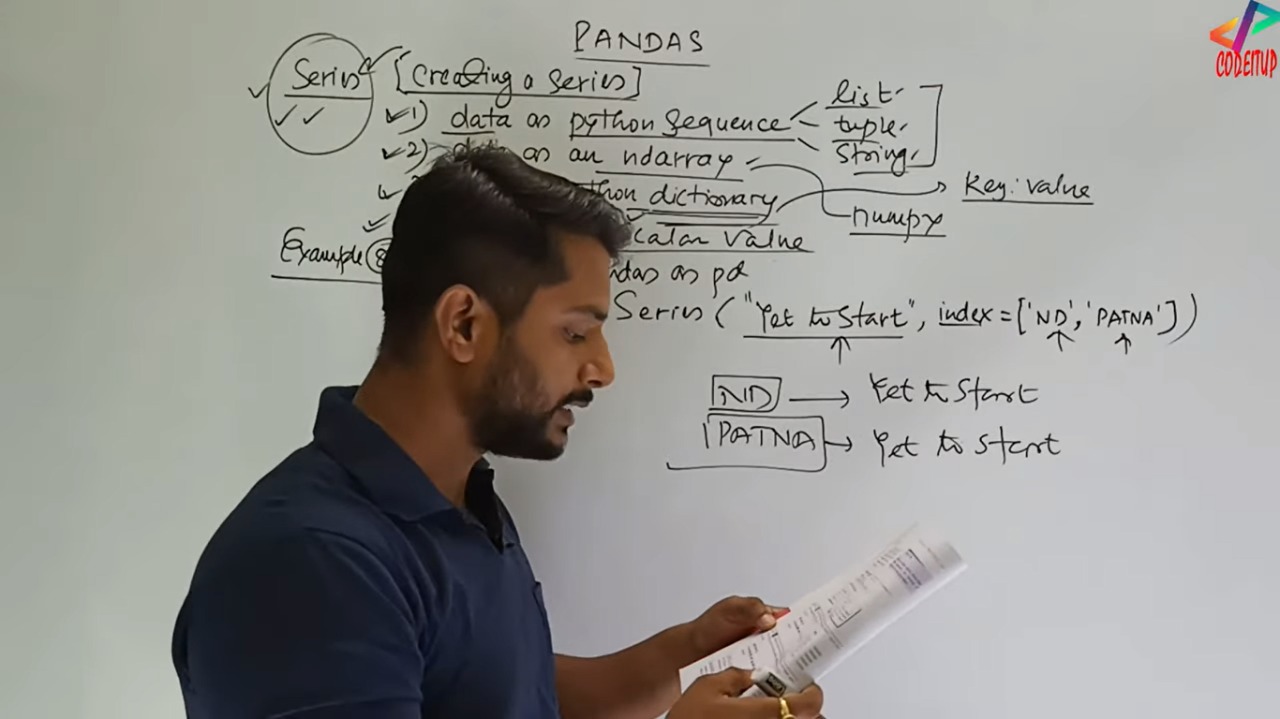 PANDAS
CODEITUP
Series [Creating a series]
1) data as python sequence
list
tuple
string
2) data as an ndarray
numpy
python dictionary
Key: value
Scalar Value
Example 8
pandas as pd
Series ("Yet to Start", index = ['ND', 'PATNA'])
ND → Yet to Start
PATNA → Yet to Start